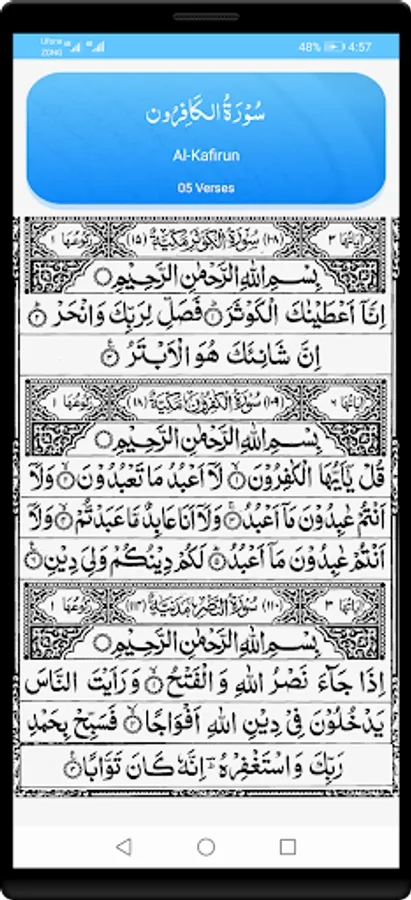 Ufone
ZONG
48% 4:57
سُوْرَةُ الْكَافِرُون
Al-Kafirun
05 Verses
اٰيَاتُهَا ٣ (١٠٨) سُوْرَةُ الْكَوْثَرِ مَكِّيَّةٌ (١٥) رُكُوْعُهَا ١
بِسْمِ اللهِ الرَّحْمٰنِ الرَّحِيْمِ
اِنَّاۤ اَعْطَيْنٰكَ الْكَوْثَرَ ١ فَصَلِّ لِرَبِّكَ وَانْحَرْ ٢
اِنَّ شَانِئَكَ هُوَ الْاَبْتَرُ ٣
اٰيَاتُهَا ٦ (١٠٩) سُوْرَةُ الْكٰفِرُوْنَ مَكِّيَّةٌ (١٨) رُكُوْعُهَا ١
بِسْمِ اللهِ الرَّحْمٰنِ الرَّحِيْمِ
قُلْ يٰۤاَيُّهَا الْكٰفِرُوْنَ ١ لَاۤ اَعْبُدُ مَا تَعْبُدُوْنَ ٢ وَلَاۤ
اَنْتُمْ عٰبِدُوْنَ مَاۤ اَعْبُدُ ٣ وَلَاۤ اَنَا عَابِدٌ مَّا عَبَدْتُّمْ ٤ وَلَاۤ
اَنْتُمْ عٰبِدُوْنَ مَاۤ اَعْبُدُ ٥ لَكُمْ دِيْنُكُمْ وَلِيَ دِيْنِ ٦
اٰيَاتُهَا ٣ (١١٠) سُوْرَةُ النَّصْرِ مَدَنِيَّةٌ (١١٤) رُكُوْعُهَا ١
بِسْمِ اللهِ الرَّحْمٰنِ الرَّحِيْمِ
اِذَا جَآءَ نَصْرُ اللهِ وَ الْفَتْحُ ١ وَ رَاَيْتَ النَّاسَ
يَدْخُلُوْنَ فِيْ دِيْنِ اللهِ اَفْوَاجًا ٢ فَسَبِّحْ بِحَمْدِ
رَبِّكَ وَ اسْتَغْفِرْهُ اِنَّهٗ كَانَ تَوَّابًا ٣